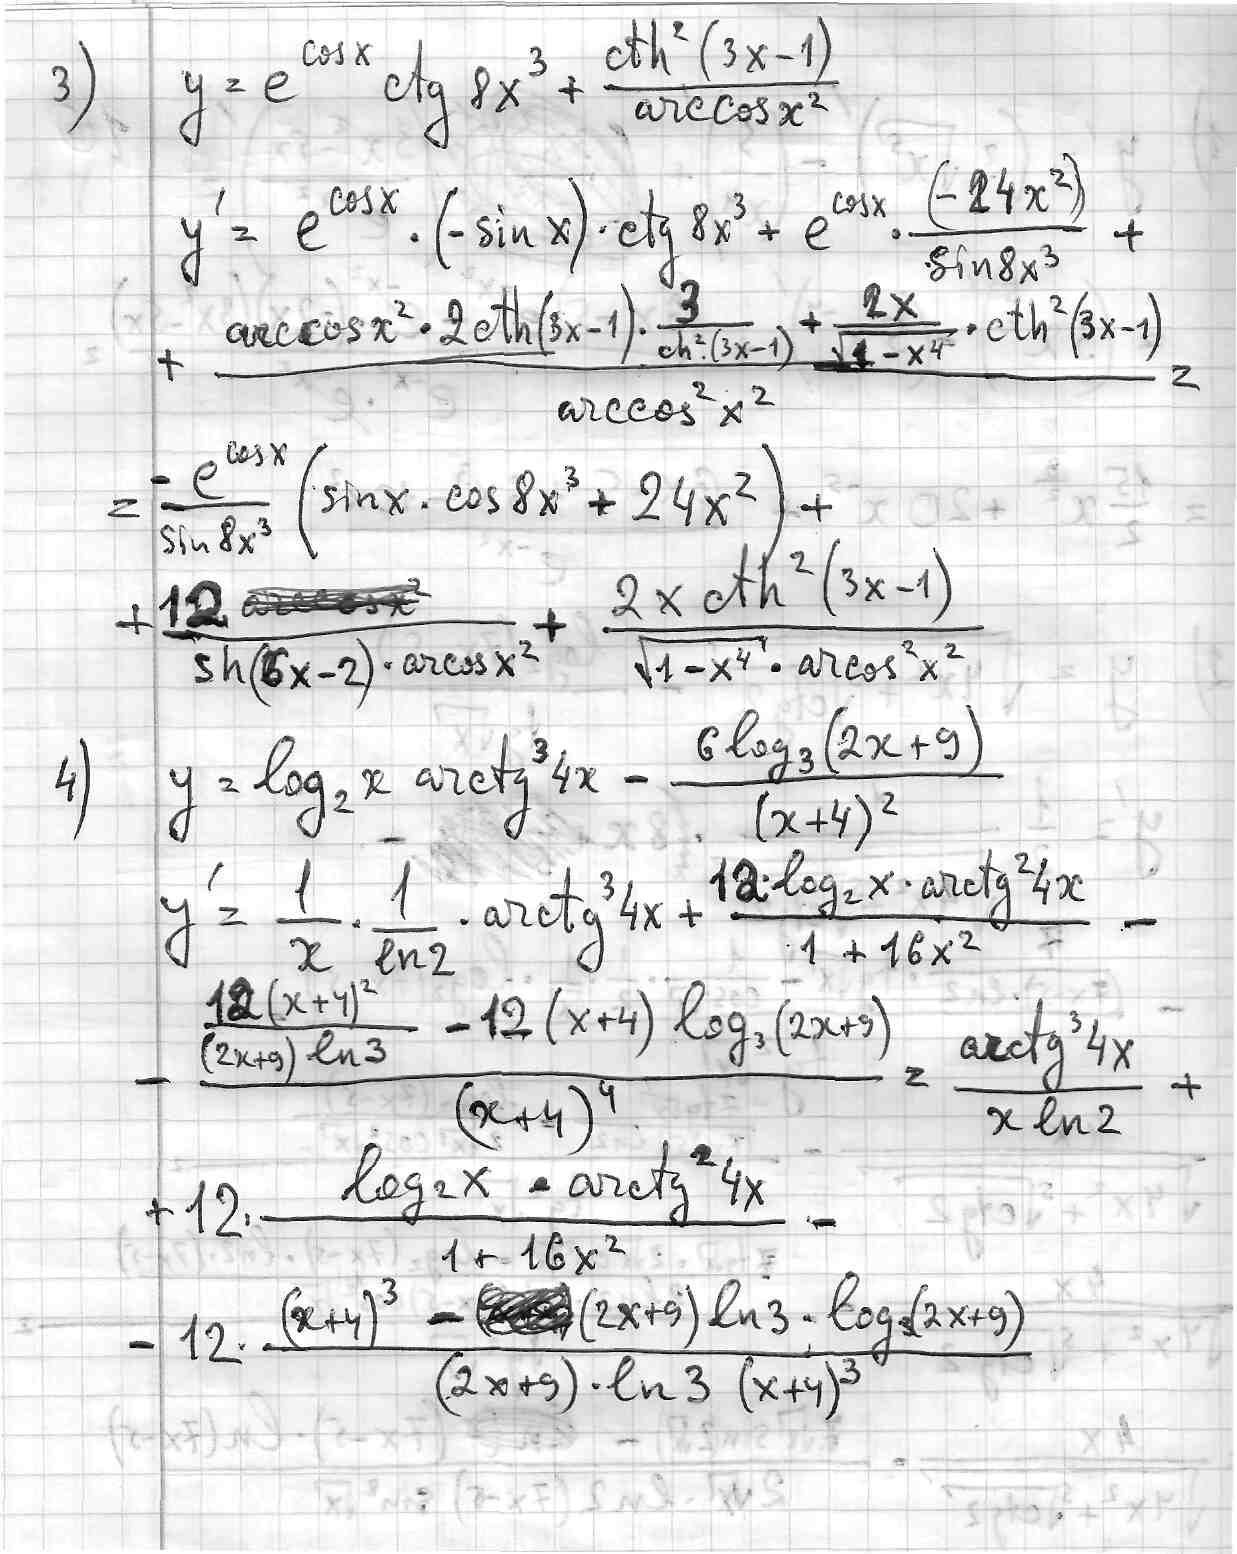 3) y = e^{cosx} ctg 8x^3 + \frac{cth^2(3x-1)}{arccosx^2}
y' = e^{cosx} · (-sin x) · ctg 8x^3 + e^{cosx} · \frac{(-24x^2)}{sin8x^3} +
+ \frac{arccosx^2 · 2cth(3x-1) · \frac{3}{ch^2(3x-1)} + \frac{2x}{\sqrt{1-x^4}} · cth^2(3x-1)}{arccos^2x^2} =
= \frac{-e^{cosx}}{sin8x^3} (sinx · cos8x^3 + 24x^2) +
+ \frac{12}{sh(6x-2) · arcosx^2} + \frac{2x cth^2(3x-1)}{\sqrt{1-x^4} · arcos^2x^2}
4) y = log_2 x arctg^3 4x - \frac{6log_3(2x+9)}{(x+4)^2}
y' = \frac{1}{x} · \frac{1}{ln2} · arctg^3 4x + \frac{12·log_2 x · arctg^2 4x}{1 + 16x^2} -
- \frac{\frac{12(x+4)^2}{(2x+9) ln3} - 12(x+4) log_3(2x+9)}{(x+4)^4} = \frac{arctg^3 4x}{x ln2} +
+ 12 · \frac{log_2 x · arctg^2 4x}{1 + 16x^2} -
- 12 · \frac{(x+4)^3 - (2x+9) ln3 · log_3(2x+9)}{(2x+9) · ln3 (x+4)^3}